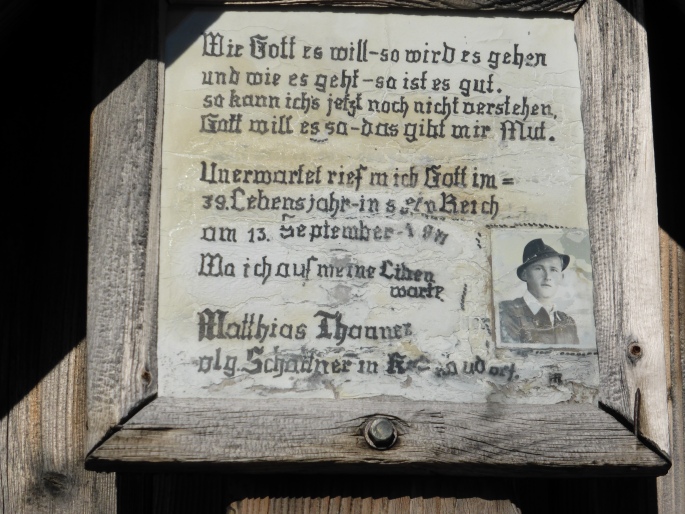 Wie Gott es will-so wird es gehen
und wie es geht-so ist es gut.
so kann ich's jetzt noch nicht verstehen,
Gott will es so-das gibt mir Mut.
Unerwartet rief mich Gott im=
39.Lebensjahr-in sein Reich
am 13. September
Wo ich auf meine Liben
warte
Matthias Thanner
vlg. Schadner in